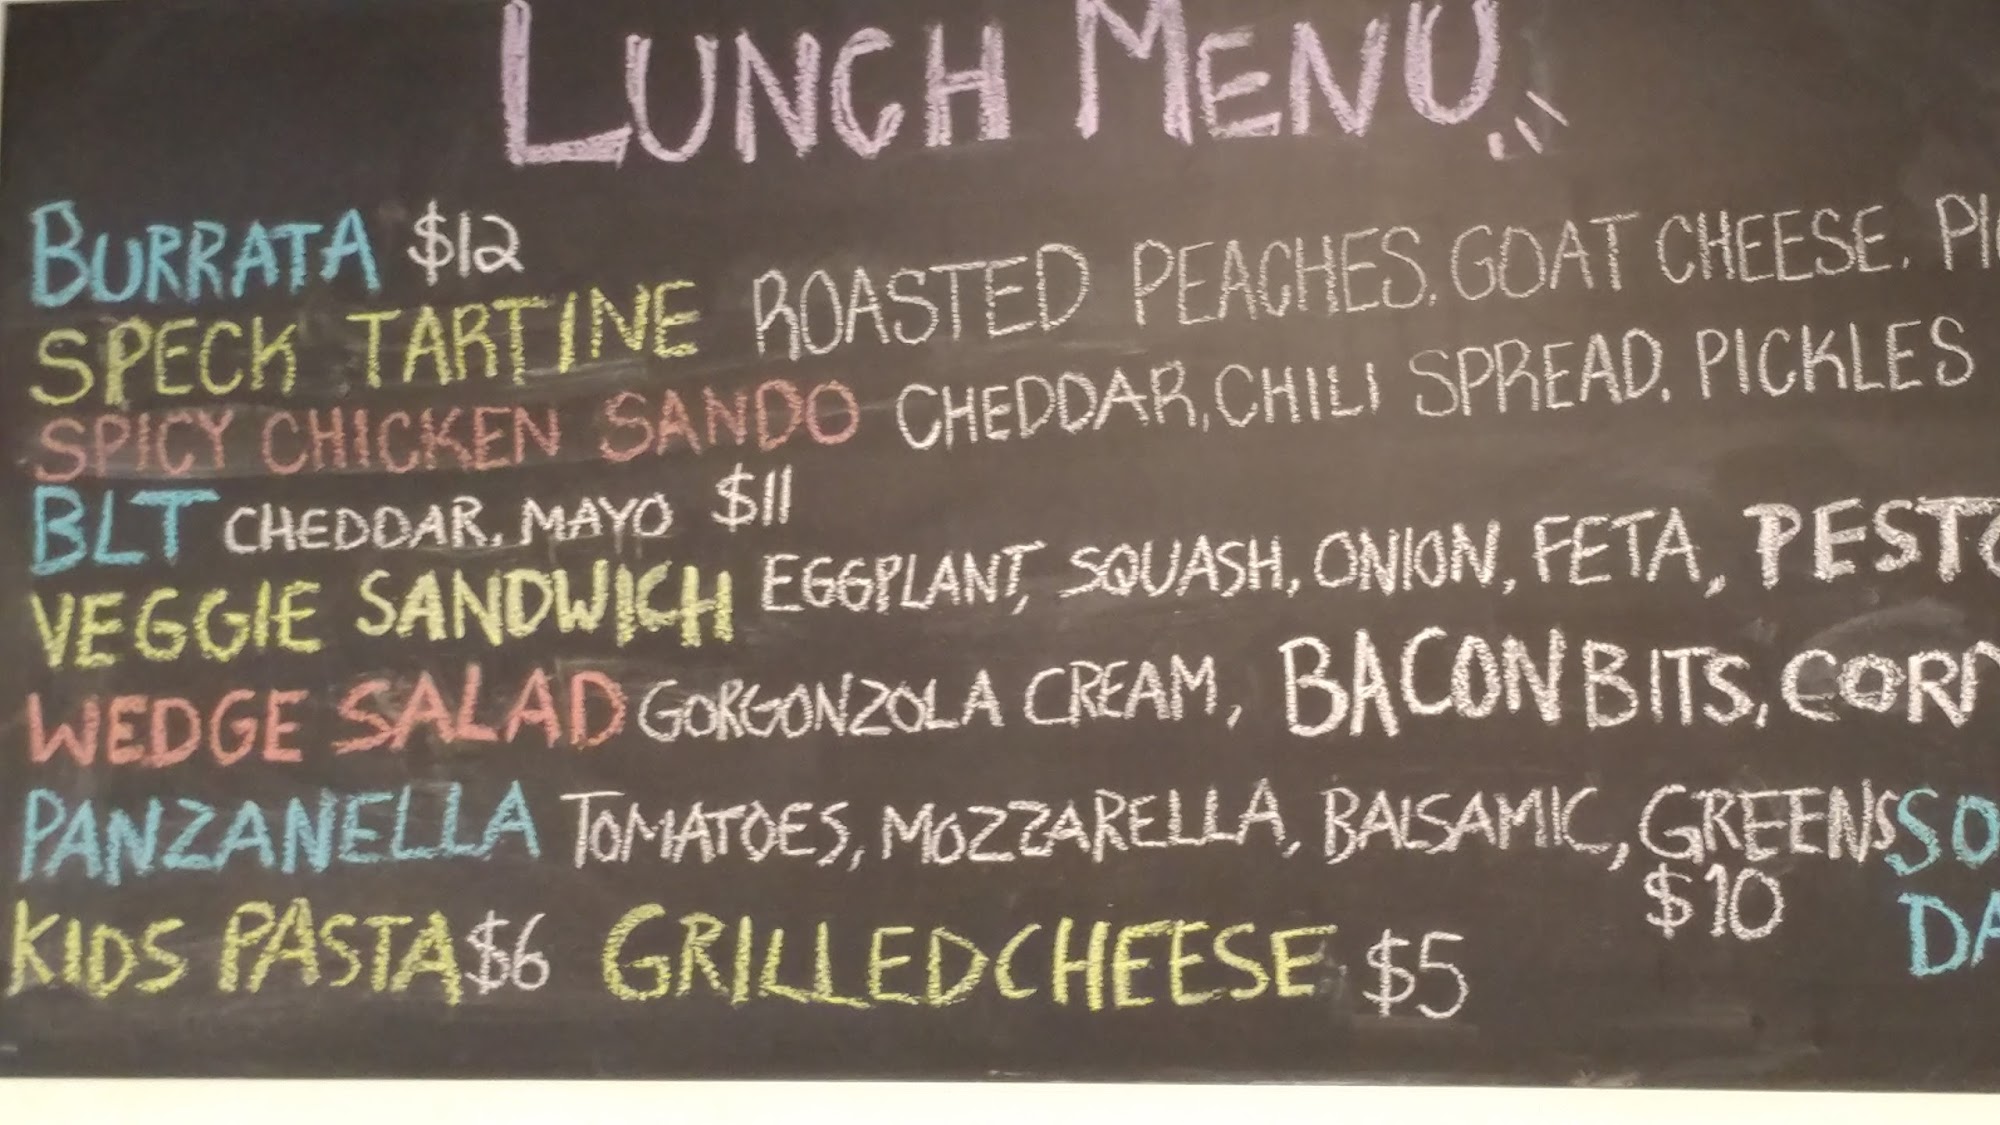 LUNCH MENU
BURRATA $12
SPECK TARTINE ROASTED PEACHES, GOAT CHEESE, PI
SPICY CHICKEN SANDO CHEDDAR, CHILI SPREAD, PICKLES
BLT CHEDDAR, MAYO $11
VEGGIE SANDWICH EGGPLANT, SQUASH, ONION, FETA, PESTO
WEDGE SALAD GORGONZOLA CREAM, BACON BITS, CORN
PANZANELLA TOMATOES, MOZZARELLA, BALSAMIC, GREENS SO
$10 DA
KIDS PASTA $6 GRILLED CHEESE $5